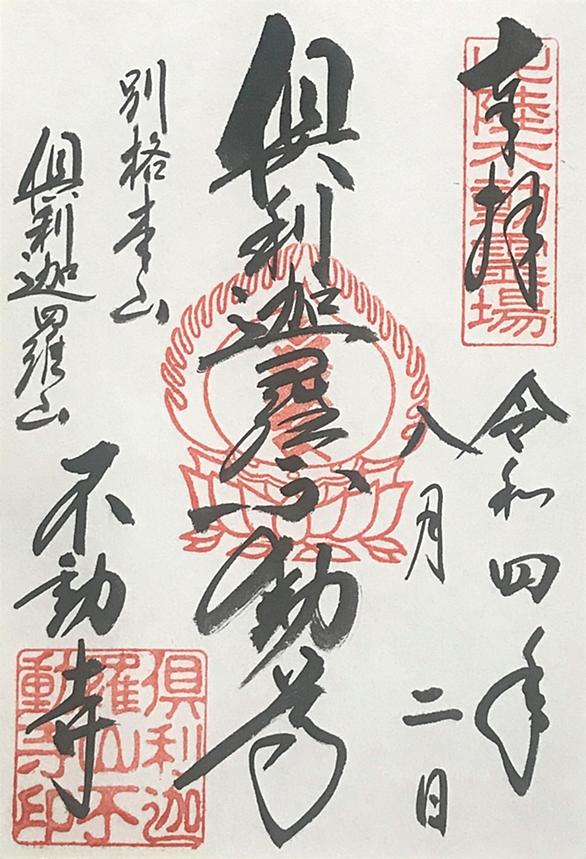 奉拝
北陸不動霊場
令和四年
八月二日
倶利迦羅不動尊
別格本山
倶利迦羅山
不動寺
倶利迦
羅山不
動寺印